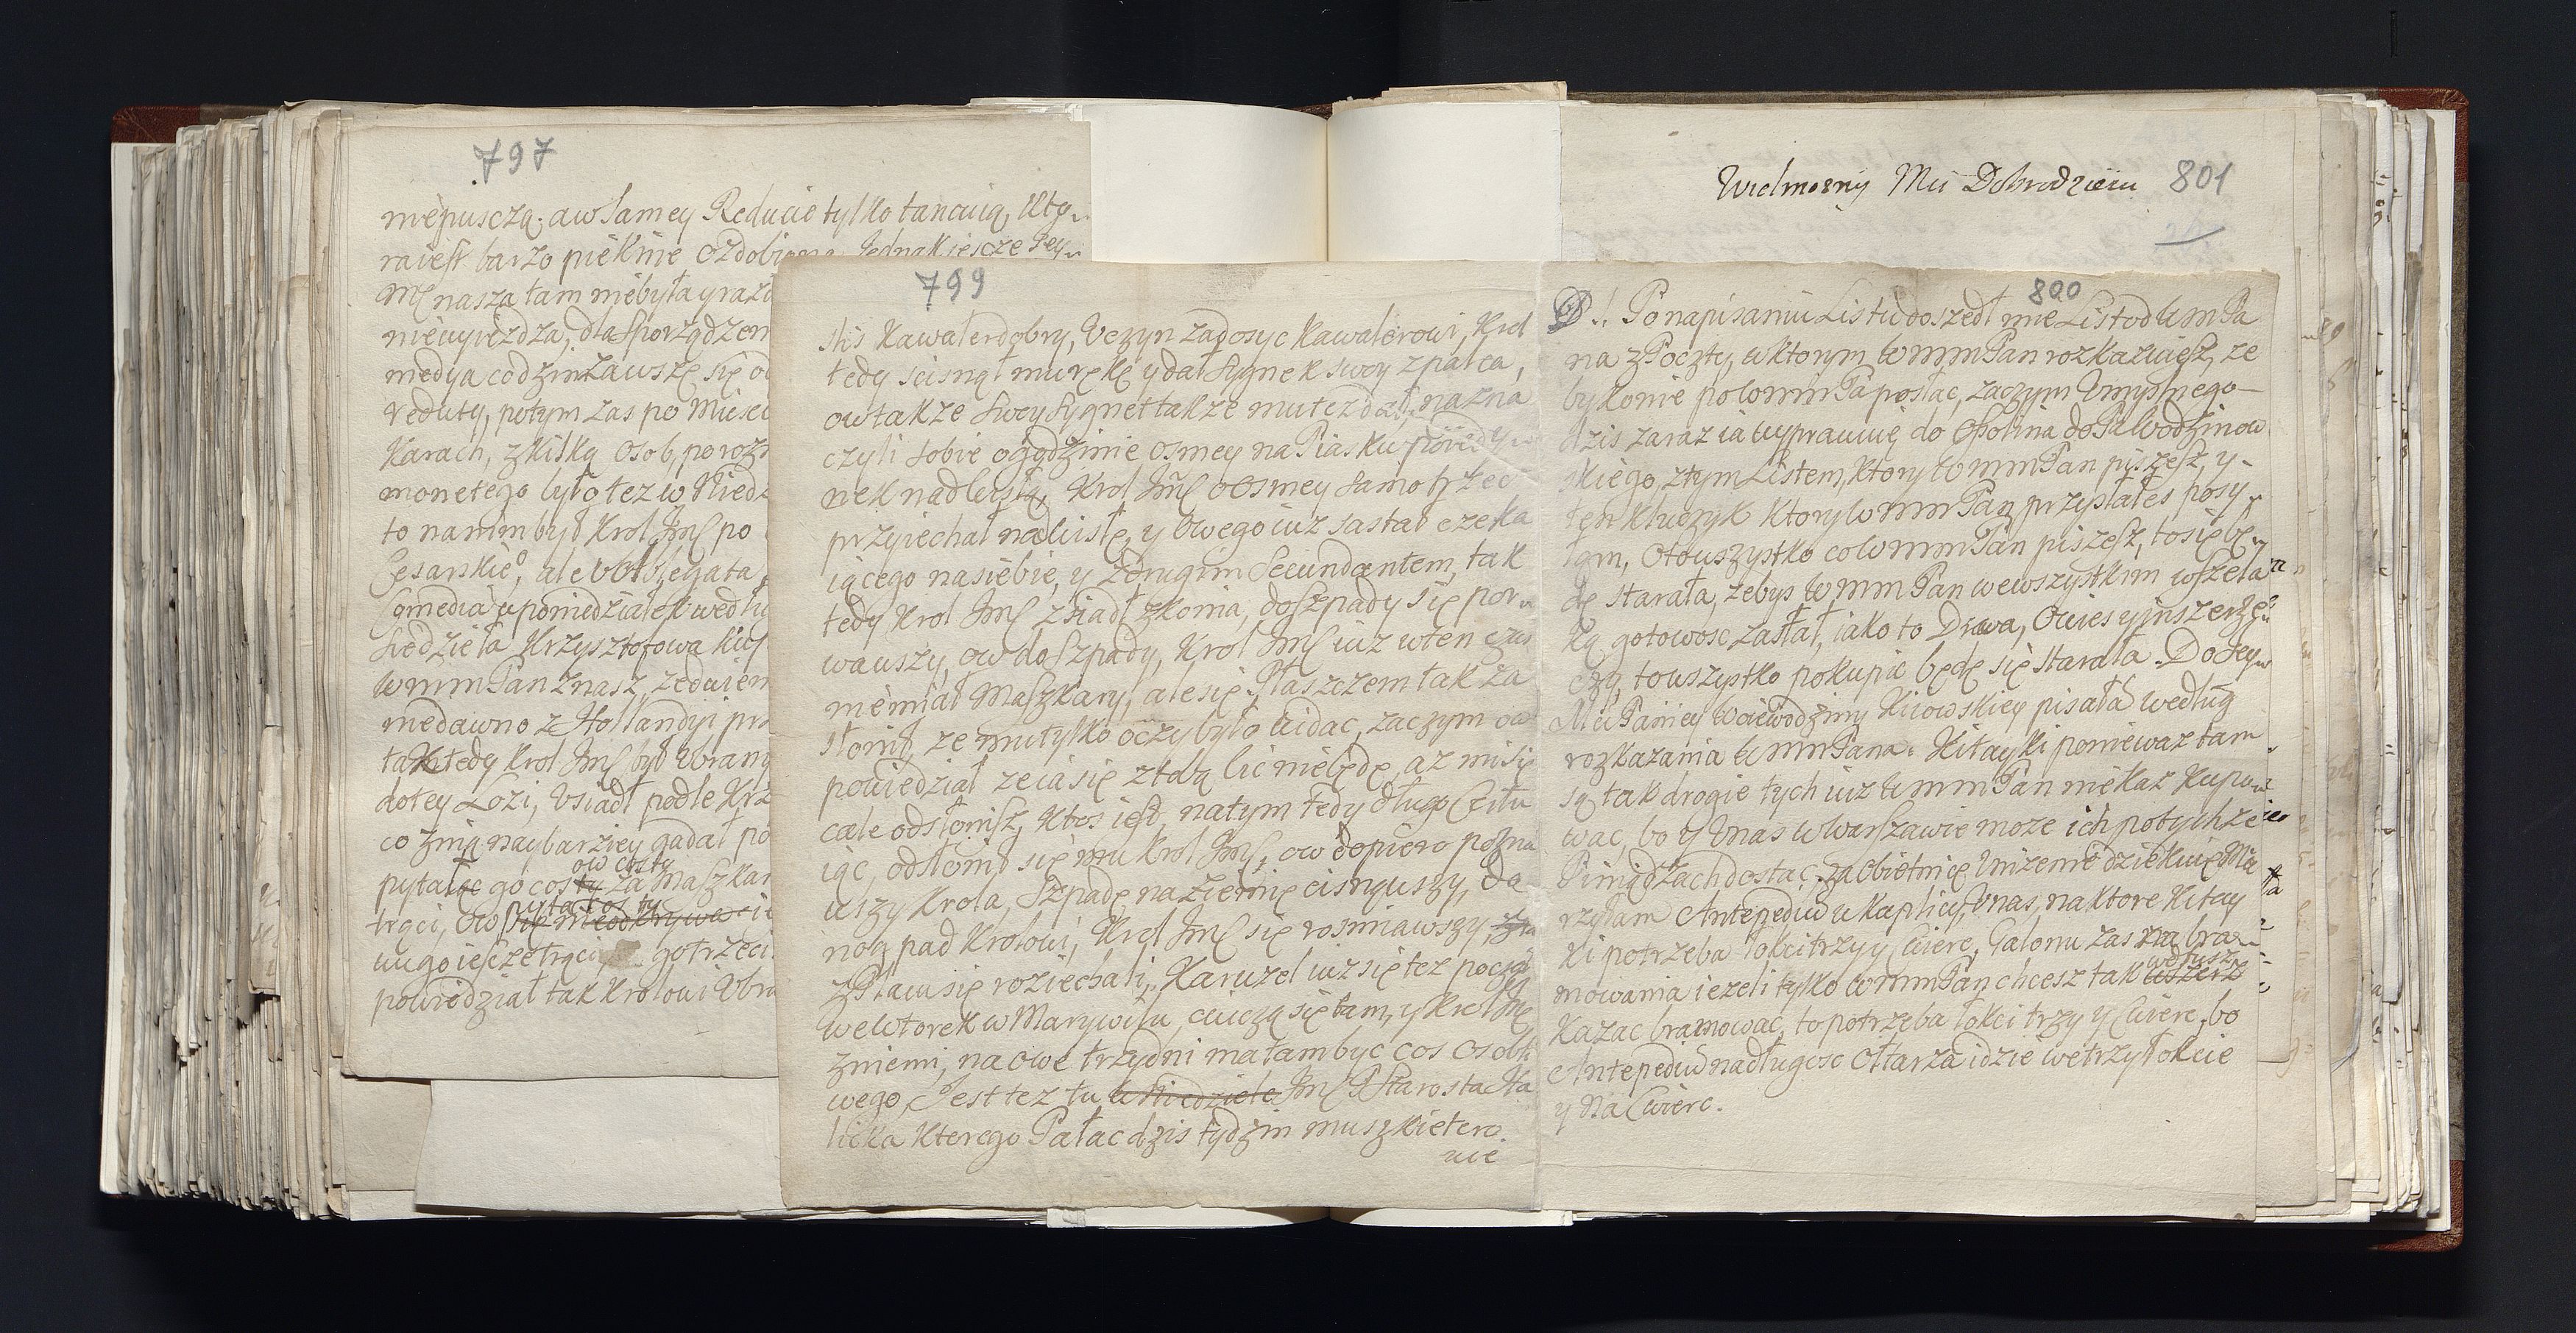 797
niepusczą. a w samey Reducie tylko tancuią, Kto
ra iest barzo pieknie ozdobiona. Jednak iescze Jey
Mę nasza tam niebyła y raz
niewyiezdza, dla sporządzen
medya co dzin zawsze się od
reduty, potym zas po Miesc
Karach, z kilką osob, po roz
mone tego było tez w Niedz
to na nim był Krol Jmę po
Cesarskie,
Comedia w poniedziałek według
siedziela Krzysztofowa Kup
WmmPan znasz, ze
niedawno z Hollandyi prz
tak tedy Krol Jmę był Ubrany
do tey Lozi, Usiadł podle Krz
co z nią naybarziey gadał po
ow cos ty
pyta go cos ty za Maszkar
pyta cos ty
trąci, ow się nieodkrywa
mu go iescze trąci, go trzeci
powiedział tak Krolowi Ubra
799
Kawaler dobry, Uczyn zadosyc Kawalerowi, Krol
tedy scisnął mu rękę y dał sygnek swoy z palca,
ow takze swoy sygnet takze mu tez dał, nazna
czyli sobie o godzinie osmey na Piasku poiedy
nek nad Wisłą, Krol Jmę o osmey samo trzec
przyiechał nad Wisłę, y owego iuz zastał czeka
iącego na siebie, y z drugim Secundantem, tak
tedy Krol Jmę zsiadł z konia, do szpady się por
wauszy, ow do szpady, Krol Jmę iuz w ten czas
niemiał Maszkary, ale się Płaszczem tak za
słonił, ze mu tylko oczy było widac, zaczym ow
powiedział ze ia się z tobą bic niebędę, az mi się
cale odsłonisz, Ktos iest, na tym tedy długo
iąc, odsłonił się mu Krol Jmę, ow dopiero pozna
wszy Krola, Szpadę na ziemię cisnąwszy, do
nog pad Krolowi, Krol Jmę się rosmiawszy,
z Placu się roziechali, Karuzel iuz się tez począł
we Wtorek w Marywilu, cwiczą się tam, y Krol Jmę
z niemi, na owe trzy dni ma tam byc cos osobli
wego, Jest tez tu w Niedziele Jmę P Starosta Ha
licka Ktorego Pałac dzis tydzin muszkietero
wie
800
P. S. Po napisaniu Listu doszedł mie List od WmPa
na z Poczty, w ktorym WmmPan rozkazuiesz, ze
by konie po WmmPa posłac, zaczym Umyslnego
dzis zaraz ia wyprawuię do Opolina do Pa Wodzinow
skiego, z tym Listem, Ktory WmmPan piszesz, y
ten kluczyk Ktory WmmPan przysłałes posy
łam, oto wszystko co WmmPan piszesz, to się bę
dę starała, zebys WmmPan we wszystkim wszela
ką gotowosc zastał, iako to Drwa, owies y insze rze
czy, to wszystko pokupic będę się starała. Do Jey
Mci Paniey Woiewodziny Kiiowskiey pisała według
rozkazania WmmPana. Kitayki poniewaz tam
są tak drogie tych iuz WmmPan niekaz Kupo
wac, bo y Unas w Warszawie moze ich po tychze
Pinigdzach dostac, za obietnice Unizenie dziekuię Mie
rzyłam Antepedium w kaplicy, Unas, na ktore Kitay
ki potrzeba łokci trzy y cwierc, Galonu zas na bra
mowania iezeli tylko WmmPan chcesz tak wszerz
wdłusz
Kazac bramowac, to potrzeba łokci trzy y cwierc, bo
Antepedium na długosc Ołtarza idzie we trzy łokcie
y na cwierc.
801
Wielmozny Mci Dobrodzieiu